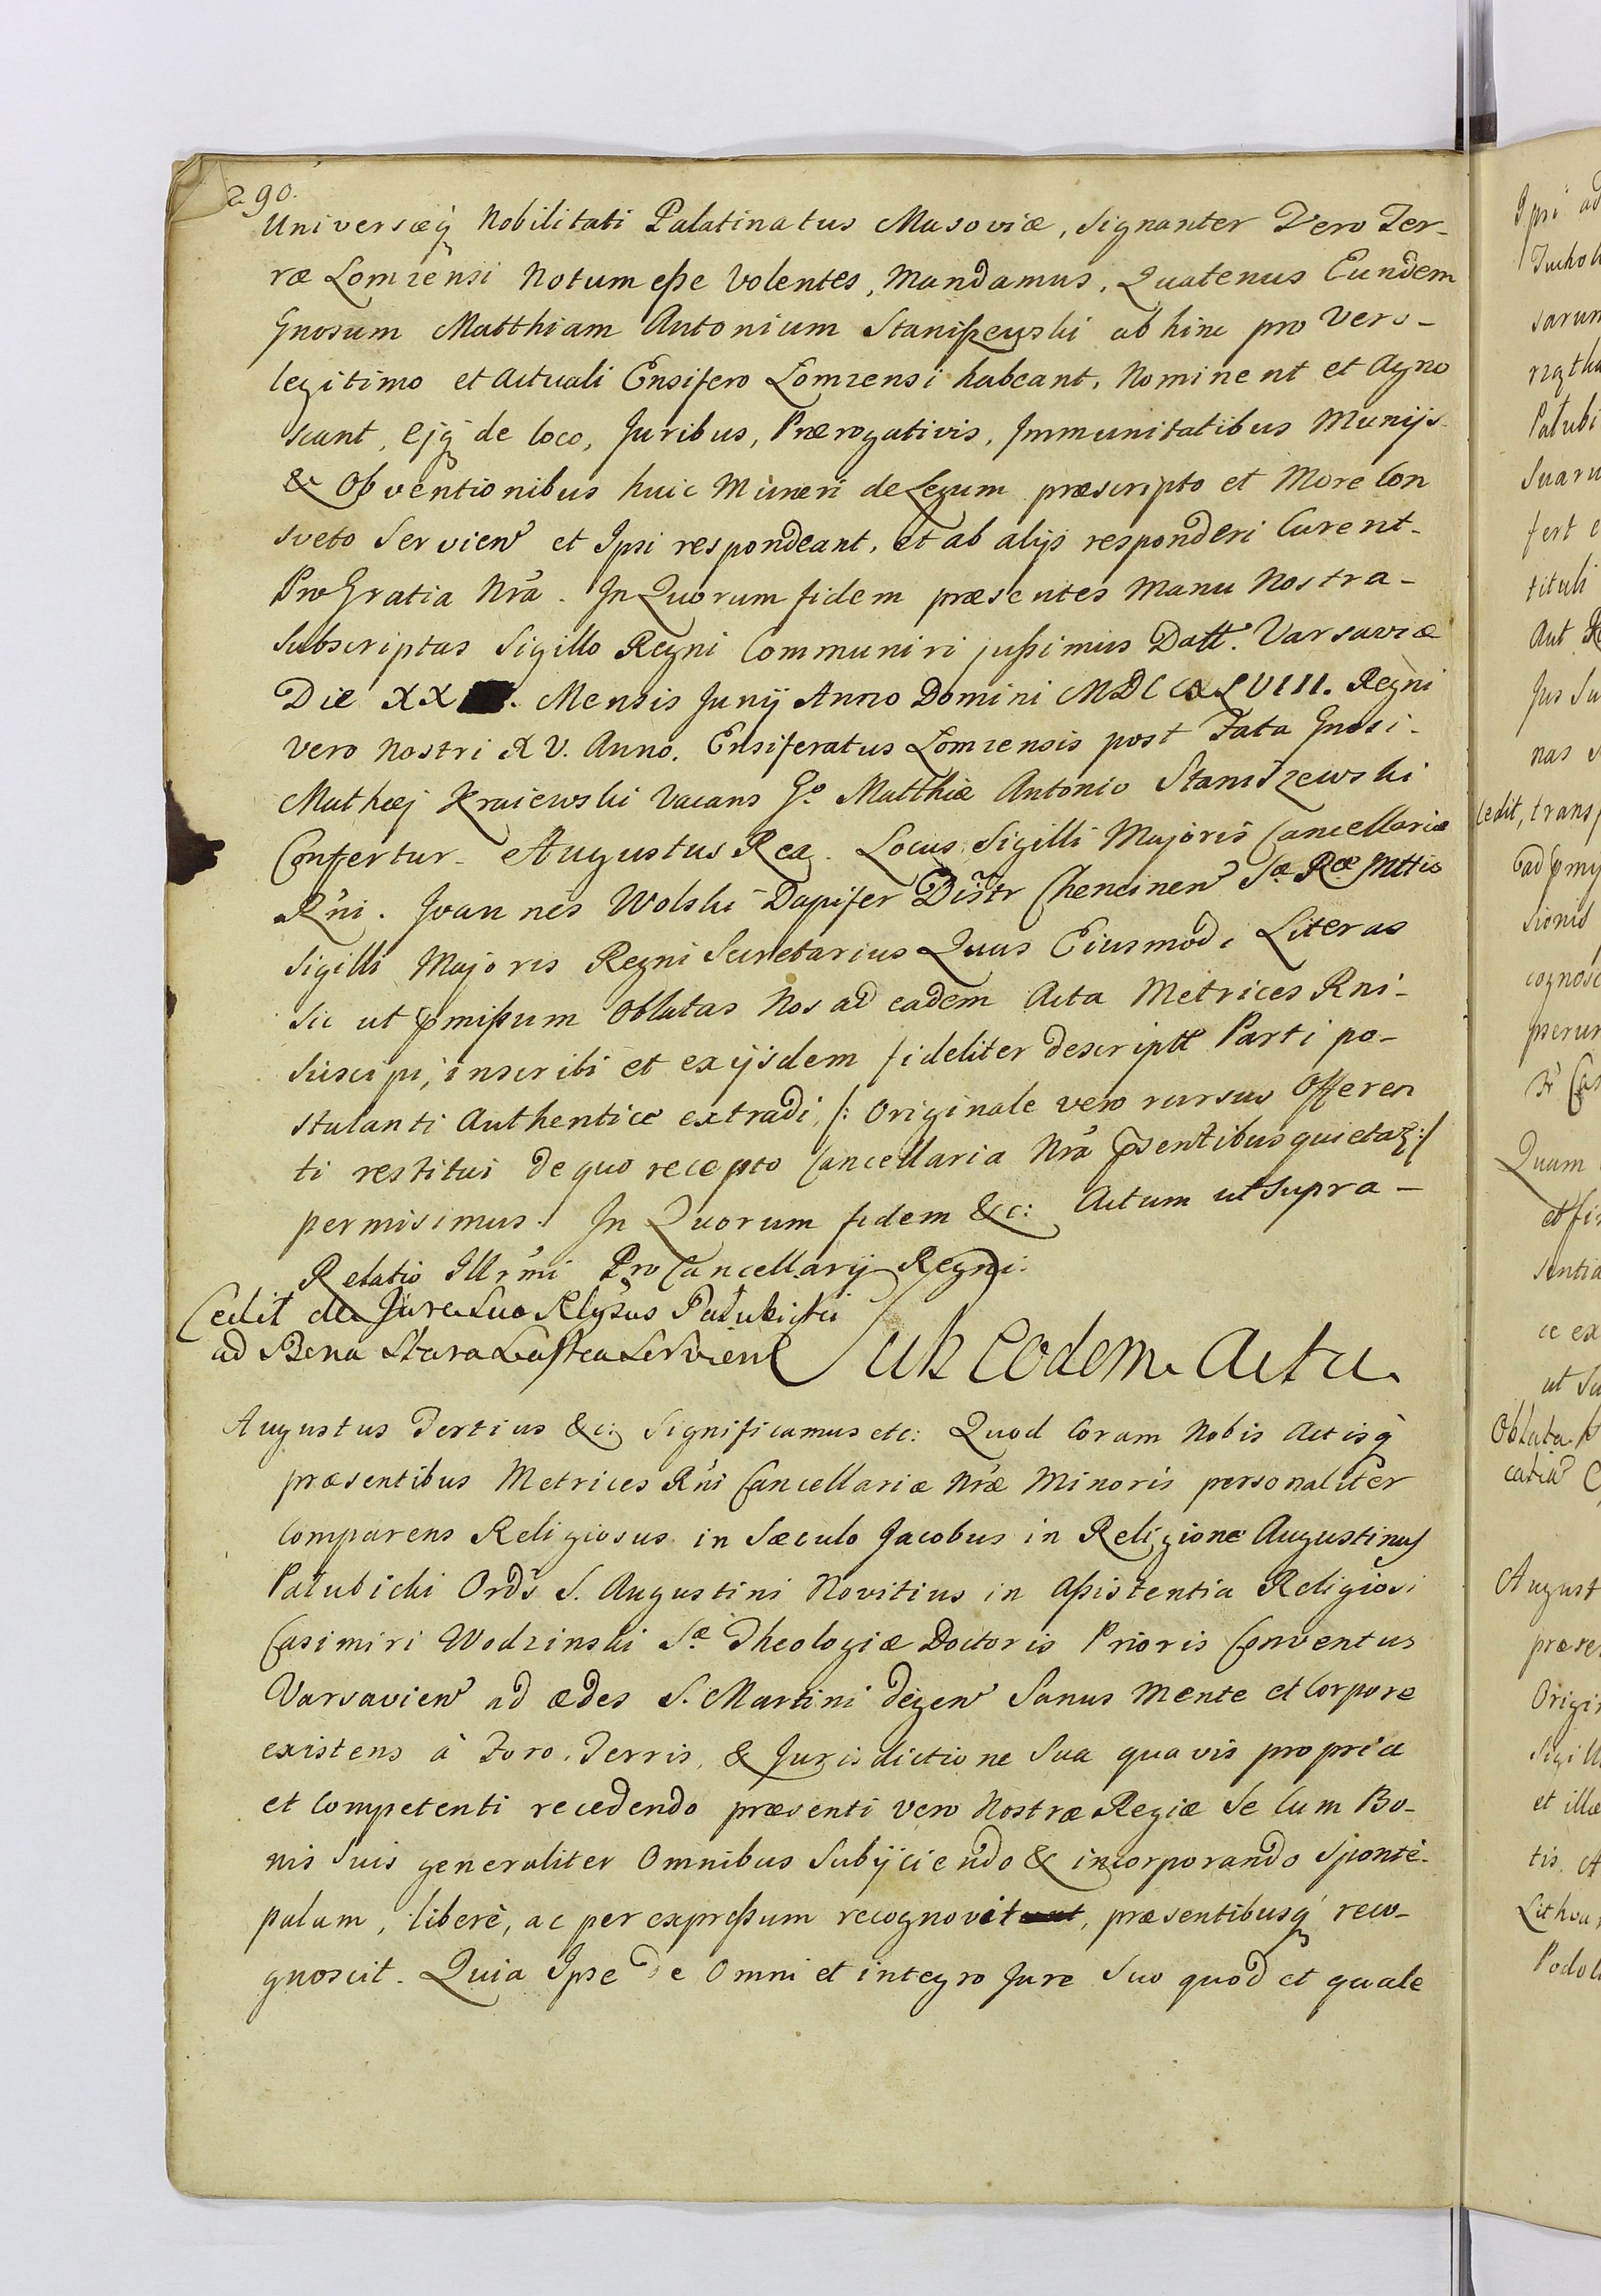 290.
Universæq́ Nobilitati Palatinatus Masoviæ, Signanter Vero Ter-
ræ Lomzensi Notum eße Volentes, Mandamus, Quatenus Eundem
Gnosum Matthiam Antonium Stanißewski ab hinc pro Vero-
legitimo et Actuali Ensifero Lomzensi habeant, Nominent et Agno
scant, ejq́ de loco, Juribus, Prærogativis, Immunitatibus Munijs
& Obventionibus huic Muneri de Legum præscripto et More Con
sveto Servien̄ et Ipsi respondeant, et ab alijs responderi Curent-
Pro Gratia Nrá. In Quorum fidem præsentes Manu Nostra-
Subscriptas Sigillo Regni Communiri jußimus Datt. Varsaviæ
Die XX . Mensis Junij Anno Domini MDCCXLVIII. Regni
Vero Nostri XV. Anno. Ensiferatus Lomzensis post Fata Gnosi-
Mathæj Krajewski Vacans Go Matthiæ Antonio Staniszewski
Confertur. Augustus Rex. Locus Sigilli Majoris Cancellariæ
Rńi. Joannes Wolski Dapifer Distr Chencinen̄ Sæ Ræ Mttis
Sigilli Majoris Regni Secretarius Quas Eiusmodi Literas
Sic ut pmißum Oblatas Nos ad eadem Acta Metrices Rni-
Suscipi, inscribi et ex ijsdem fideliter descriptt Parti po-
stulanti Authentice extradi, /: Originale vero rursus Offeren
ti restitui de quo recepto Cancellaria Nrá psentibus quietat :/
permisimus. In Quorum fidem &c: Actum ut Supra-
Relatio Illrḿi Pro Cancellarij Regni.
Cedit de Jure Suo Rlgsus Patubicki
ad Bona Stara Laska Servien̄
Sub Eodem Actu.
Augustus Tertius &c: Significamus etc: Quod Coram Nobis Actisq́
præsentibus Metrices Rńi Cancellariæ Nŕæ Minoris personaliter
Comparens Religiosus in Sæculo Jacobus in Religione Augustinus
Patubicki Ordis S. Augustini Novitius in Aßistentia Religiosi
Casimiri Wodzinski Sæ Theologiæ Doctoris Prioris Conventus
Varsavien̄ ad ædes S. Martini degen̄ Sanus Mente et Corpore
existens à Foro, Terris, & Jurisdictione Sua quavis propria
et Competenti recedendo præsenti vero Nostræ Regiæ Se Cum Bo-
nis Suis generaliter Omnibus Subijciendo & incorporando Spontè-
palam, liberè, ac per expreßum recognovit, præsentibusq́ reco-
gnoscit. Quia Ipse de Omni et integro Jure Suo quod et quale